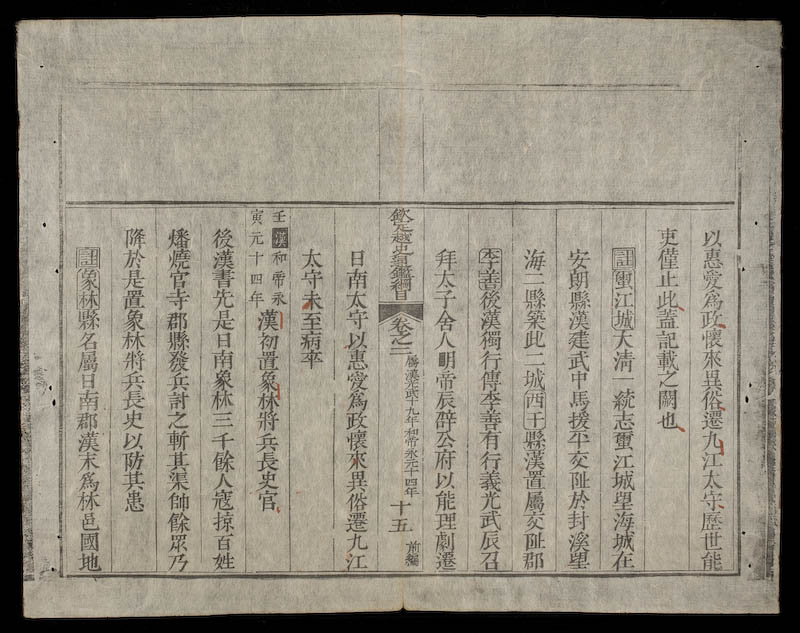 以惠愛爲政懷來異俗遷九江太守歷世能
吏僅止此蓋記載之闕也
註璽江城大清一統志璽江城望海城在
安朗縣漢建武中馬援平交趾於封溪望
海二縣築此二城西于縣漢置屬交趾郡
李善後漢獨行傳李善有行義光武辰召
拜太子舍人明帝辰辟公府以能理劇遷
欽定越史通鑑綱目 卷之二 屬漢光武十九年和帝永元十四年 十五 前編
日南太守以惠愛爲政懷來異俗遷九江
太守未至病卒
壬寅漢和帝永元十四年漢初置象林將兵長史官
後漢書先是日南象林三千餘人寇掠百姓
燔燒官寺郡縣發兵討之斬其渠帥餘眾乃
降於是置象林將兵長史以防其患
註象林縣名屬日南郡漢末爲林邑國地